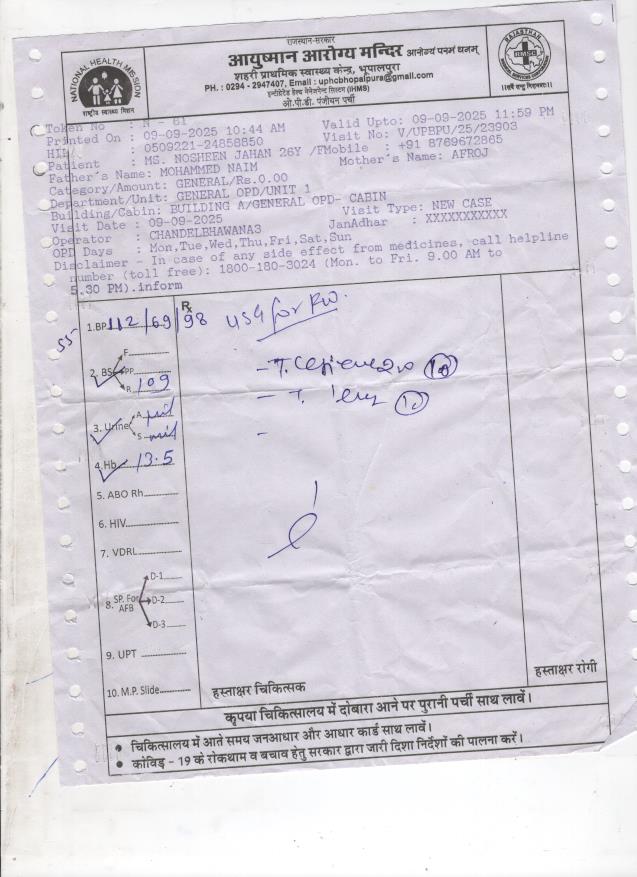 राजस्थान-सरकार
आयुष्मान आरोग्य मन्दिर आरोग्यं परमं धनम्
शहरी प्राथमिक स्वास्थ्य केन्द्र, भूपालपुरा
PH. : 0294 - 2947407, Email : uphcbhopalpura@gmail.com
इन्टीग्रेटेड हेल्थ मेनेजमेन्ट सिस्टम (IHMS)
ओ.पी.डी. पंजीयन पर्ची
NATIONAL HEALTH MISSION
राष्ट्रीय स्वास्थ्य मिशन
RAJASTHAN
RMSC
Token No : N - 61 Valid Upto: 09-09-2025 11:59 PM
Printed On : 09-09-2025 10:44 AM Visit No: V/UPBPU/25/23903
: 0509221-24858850
Patient : MS. NOSHEEN JAHAN 26Y /F Mobile : +91 8769672865
Father's Name: MOHAMMED NAIM Mother's Name: AFROJ
Category/Amount: GENERAL/Rs.0.00
Department/Unit: GENERAL OPD/UNIT 1
Building/Cabin: BUILDING A/GENERAL OPD- CABIN
Visit Date : 09-09-2025 Visit Type: NEW CASE
Operator : CHANDELBHAWANA3 JanAdhar : XXXXXXXXXXX
OPD Days : Mon,Tue,Wed,Thu,Fri,Sat,Sun
Disclaimer - In case of any side effect from medicines, call helpline
number (toll free): 1800-180-3024 (Mon. to Fri. 9.00 AM to
5.30 PM).inform
Rx
1.BP 112/69/98
55-
2. BS F PP R 109
3. Urine A nil
S nil
4.Hb 13.5
5. ABO Rh
6. HIV
7. VDRL
8. SP. For AFB D-1
D-2
D-3
9. UPT
10. M.P. Slide
USG for
- T.
- T.
-
हस्ताक्षर चिकित्सक
हस्ताक्षर रोगी
कृपया चिकित्सालय में दोबारा आने पर पुरानी पर्ची साथ लावें।
● चिकित्सालय में आते समय जनआधार और आधार कार्ड साथ लावें।
● कोविड़ - 19 के रोकथाम व बचाव हेतु सरकार द्वारा जारी दिशा निर्देशों की पालना करें।